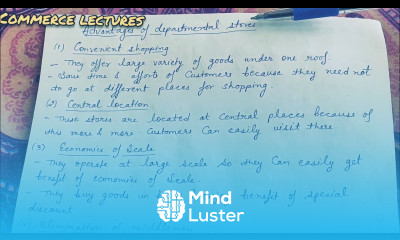 COMMERCE LECTURES
Advantages of departmental stores
(1) Convenient shopping
- They offer large variety of goods under one roof.
- Save time & efforts of customers because they need not
to go at different places for shopping.
(2) Central location
- These stores are located at central places because of
this more & more customers can easily visit there
(3) Economies of Scale
- They operate at large scale so they can easily get
benefit of economies of Scale.
- They buy goods in benefit of special
discount
Mind
Luster